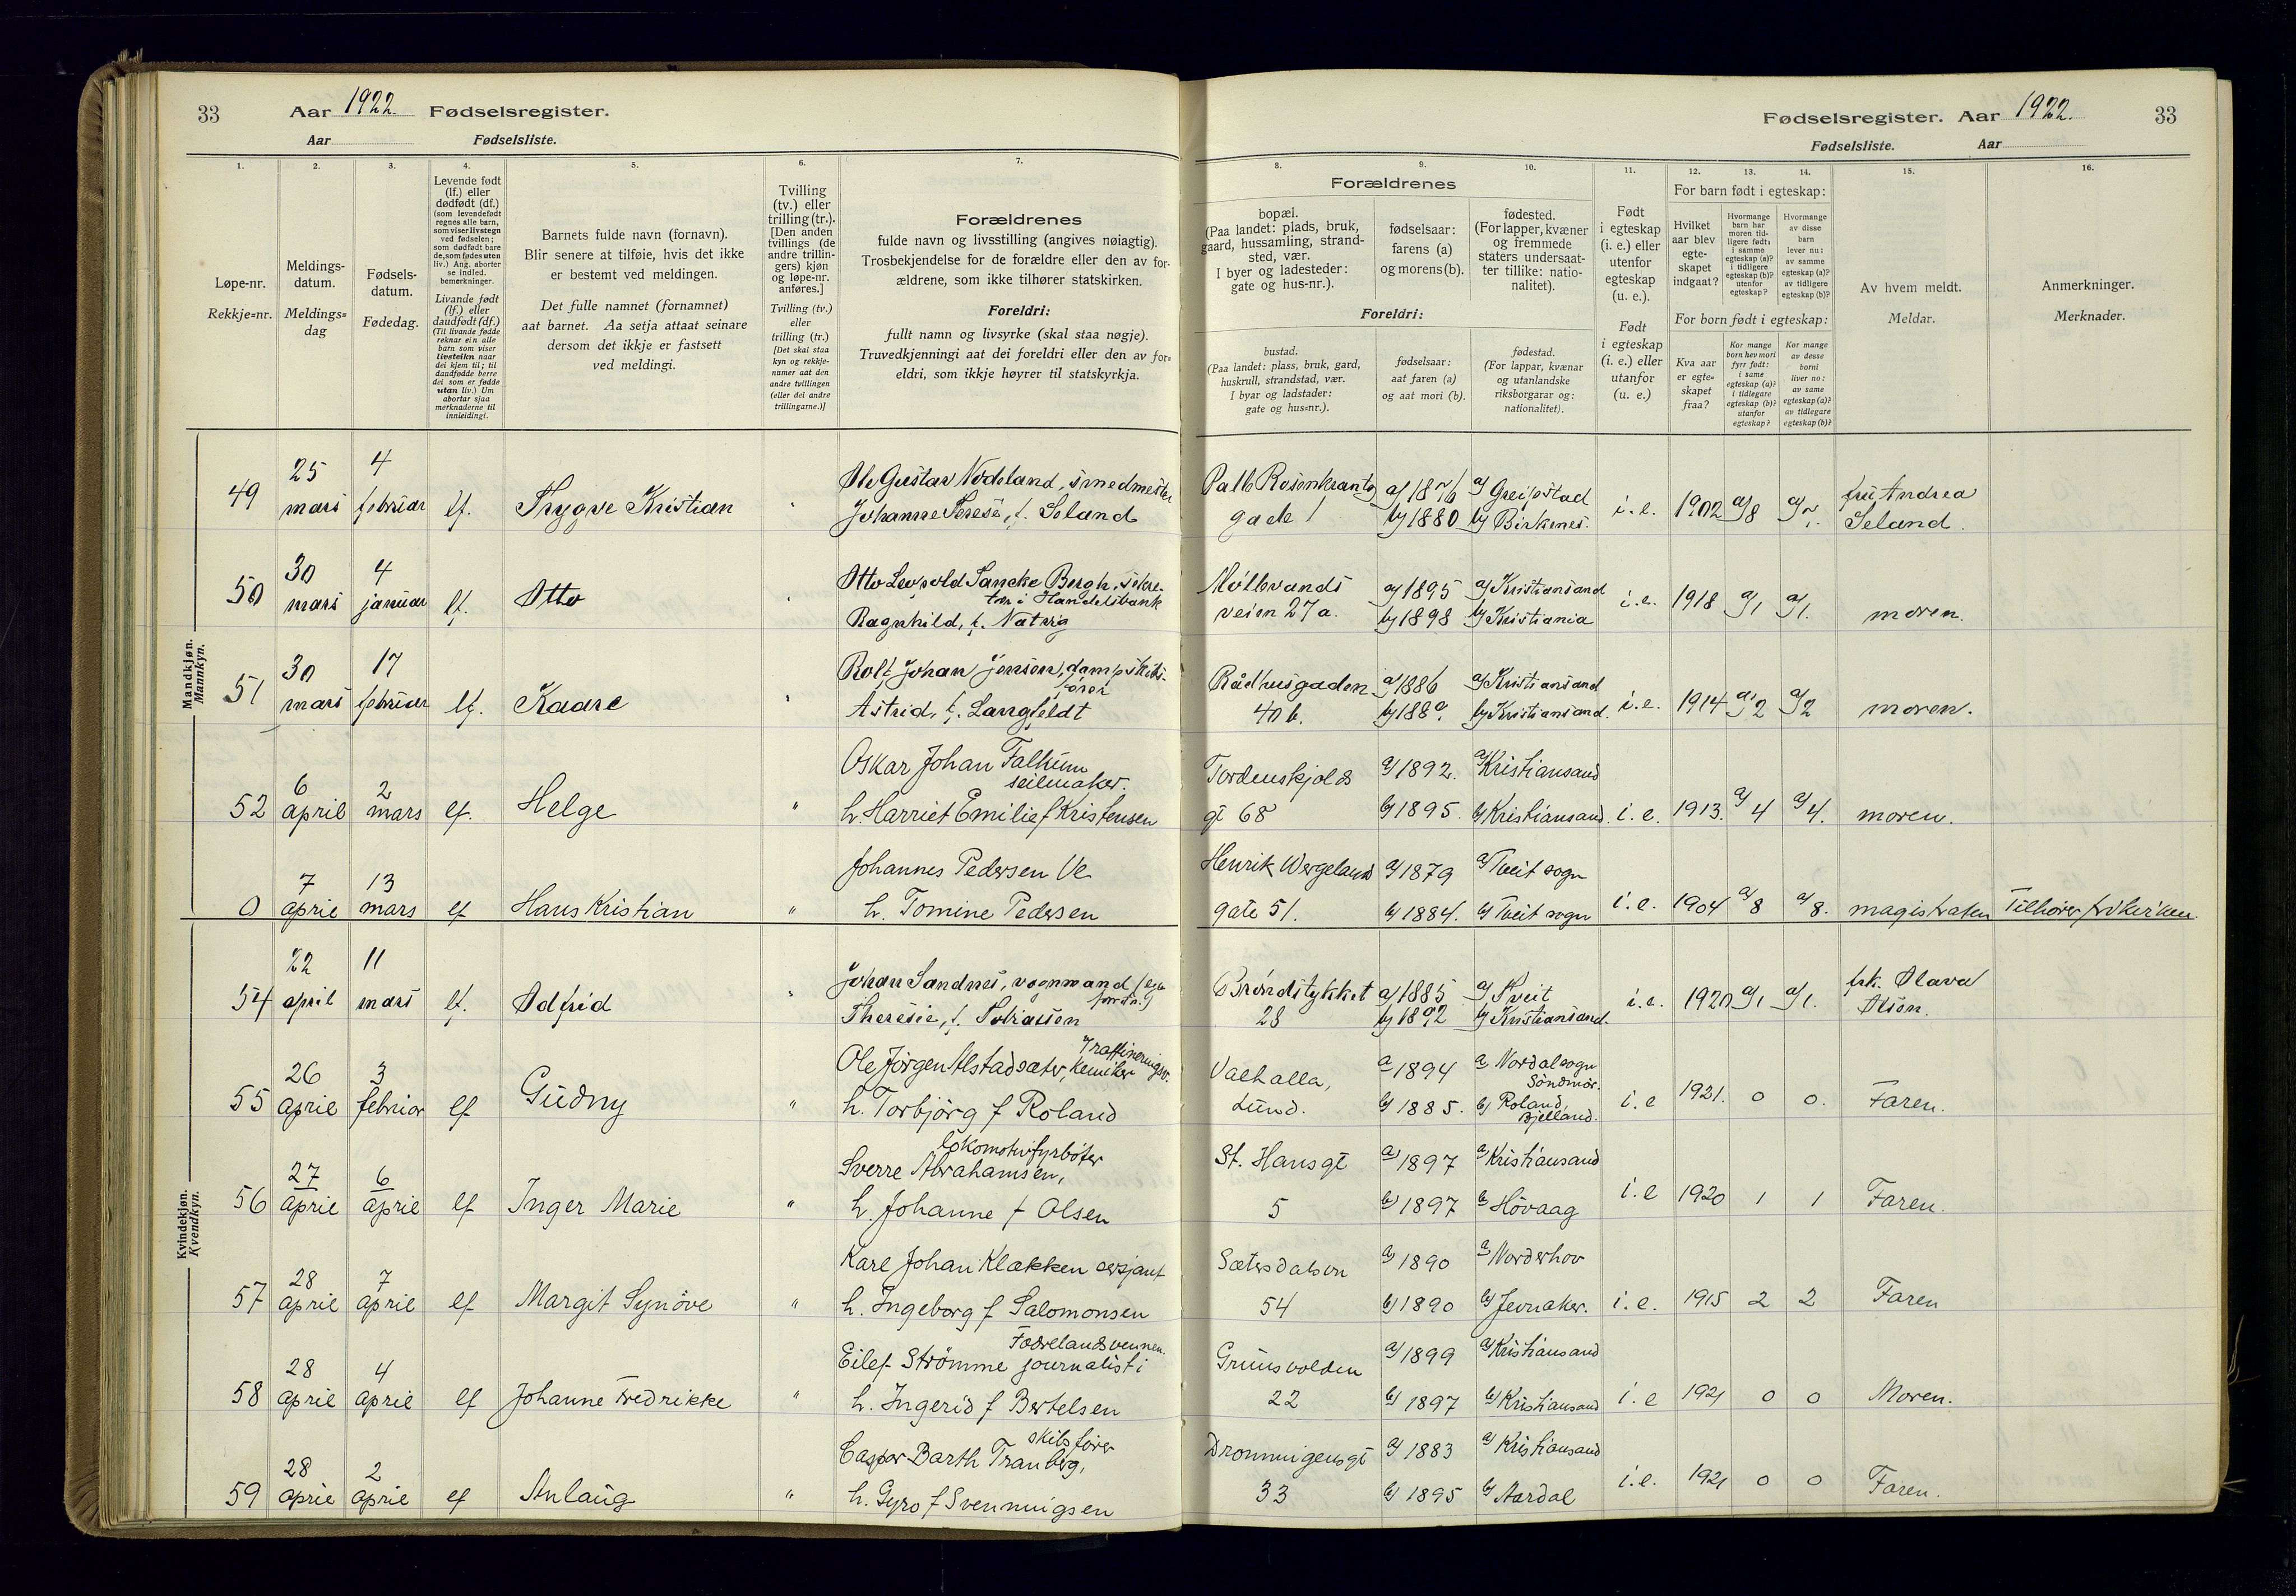 33 Aar 1922. Fødselsregister.
Aar Fødselsliste.
Fødselsregister. Aar 1922. 33
Fødselsliste. Aar
1. 2. 3. 4. 5. 6. 7.
Løpe-nr.
Rekkje-nr.
Meldings-
datum.
Meldings-
dag
Fødsels-
datum.
Fødedag.
Levende født
(lf.) eller
dødfødt (df.)
(som levendefødt
regnes alle barn,
som viser livstegn
ved fødselen;
som dødfødt bare
de, som fødes uten
liv.) Ang. aborter
se indled.
bemerkninger.
Livande født
(lf.) eller
daudfødt (df.)
(Til livande fødde
reknar ein alle
barn som viser
livsteikn naar
dei kjem til; til
daudfødde berre
dei som er fødde
utan liv.) Um
abortar sjaa
merknaderne til
innleidingi.
Barnets fulde navn (fornavn).
Blir senere at tilføie, hvis det ikke
er bestemt ved meldingen.
Det fulle namnet (fornamnet)
aat barnet. Aa setja attaat seinare
dersom det ikkje er fastsett
ved meldingi.
Tvilling
(tv.) eller
trilling (tr.).
[Den anden
tvillings (de
andre trillin-
gers) kjøn
og løpe-nr.
anføres.]
Tvilling (tv.)
eller
trilling (tr.)
[Det skal staa
kyn og rekkje-
numer aat den
andre tvillingen
(eller dei andre
trillingarne.)]
Forældrenes
fulde navn og livsstilling (angives nøiagtig).
Trosbekjendelse for de forældre eller den av for-
ældrene, som ikke tilhører statskirken.
Foreldri:
fullt namn og livsyrke (skal staa nøgje).
Truvedkjenningi aat dei foreldri eller den av for-
eldri, som ikkje høyrer til statskyrkja.
8. 9. 10. 11. 12. 13. 14. 15. 16.
Forældrenes
bopæl.
(Paa landet: plads, bruk,
gaard, hussamling, strand-
sted, vær.
I byer og ladesteder:
gate og hus-nr.).
fødselsaar:
farens (a)
og morens (b).
fødested.
(For lapper, kvæner
og fremmede
staters undersaat-
ter tillike: natio-
nalitet).
Foreldri:
bustad.
(Paa landet: plass, bruk, gard,
huskrull, strandstad, vær.
I byar og ladstader:
gate og hus-nr.).
fødselsaar:
aat faren (a)
og aat mori (b).
fødestad.
(For lappar, kvænar
og utanlandske
riksborgarar og:
nationalitet).
Født
i egteskap
(i. e.) eller
utenfor
egteskap
(u. e.).
Født
i egteskap
(i. e.) eller
utanfor
(u. e.)
For barn født i egteskap:
Hvilket
aar blev
egte-
skapet
indgaat?
Hvormange
barn har
moren tid-
ligere født:
i samme
egteskap (a)?
i tidligere
egteskap (b)?
utenfor
egteskap?
Hvormange
av disse
barn
lever nu:
av samme
egteskap (a)?
av tidligere
egteskap (b)?
For born født i egteskap:
Kva aar
er egte-
skapet
fraa?
Kor mange
born hev mori
fyrr født:
i same
egteskap (a)?
i tidlegare
egteskap (b)?
utanfor
egteskap?
Kor mange
av desse
borni
liver no:
av same
egteskap (a)?
av tidlegare
egteskap (b)?
Av hvem meldt.
Meldar.
Anmerkninger.
Merknader.
Mandkjøn.
Mannkyn.
49 25 mars 4 februar lf. Trygve Kristian " Ole Gustav Nodeland, smedmester
Johanne Terese, f. Seland
Palb Rosenkrantz
gade 1 a) 1876 b) 1880 a) Greipstad b) Birkenes. i. e. 1902 a) 8 a) 7. fru Andrea
Seland.
50 30 mars 4 januar lf. Otto " Otto Leopold Sancke Bergh, sekre-
tær i Handelsbank
Ragnhild, f. Natvig
Møllevands
veien 27 a. a) 1895 b) 1898 a) Kristiansand b) Kristiania i. e. 1918 a) 1 a) 1. moren.
51 30 mars 17 februar lf. Kaare " Rolf Johan Jensen, dampskibs-
fører
Astrid, f. Langfeldt
Rådhusgaden
40 b. a) 1886 b) 188 a) Kristiansand b) Kristiansand. i. e. 1914 a) 2 a) 2 moren.
52 6 april 2 mars lf. Helge " Oskar Johan Falkum
seilmaker.
h. Harriet Emilie f Kristensen
Tordenskjolds
gt 68 a) 1892. b) 1895. a) Kristiansand b) Kristiansand. i. e. 1913. a) 4 a) 4. moren.
0 7 april 13 mars lf Hans Kristian " Johannes Pedersen Ve
h. Tomine Pedersen
Henrik Wergelands
gate 51. a) 1879 b) 1884. a) Tveit sogn b) Tveit sogn i. e. 1904 a) 8 a) 8. magistraten Tilhører frikirken.
Kvindekjøn.
Kvendkyn.
54 22 april 11 mars lf. Odfrid " Johan Sandnes, vognmand
Theresie, f. Tobiassen
Brøndstykket
28 a) 1885 b) 1892 a) Tveit b) Kristiansand. i. e. 1920 a) 1 a) 1. frk. Olava
Olsen.
55 26 april 3 februar lf Gudny " Ole Jörgen Alstadsæter, kemiker
Raffineringsv.
h. Torbjörg f Roland
Valhalla,
Lund. a 1894 b) 1885. a) Nordalsogn
Söndmör.
b) Roland,
Bjelland. i. e 1921. 0 0. Faren.
56 27 april 6 april lf Inger Marie " Lokomotivfyrböter
Sverre Abrahamsen,
h. Johanne f Olsen
St. Hansgt
5 a) 1897 b) 1897 a) Kristiansand b) Hövaag i. e 1920 1 1 Faren.
57 28 april 7 april lf Margit Synöve " Karl Johan Klækken sersjant
h. Ingeborg f Salomonsen
Sætersdalsvn
54 a) 1890 b) 1890 a) Norderhov b) Jevnaker. i. e. 1915 2 2 Faren
58 28 april 4 april lf Johanne Fredrikke " Fædrelandsvennen.
Eilef Strömme journalist i
h. Ingerid f Bertelsen
Grimsvolden
22 a) 1899 b) 1897 a) Kristiansand b) Kristiansand i. e 1921 0 0 Moren.
59 28 april 2 april lf Anlaug " skibsförer
Casper Barth Tranberg,
h. Gyro f Svenningsen
Dronningensgt
33 a) 1883 b) 1895 a) Kristiansand b) Aardal i. e. 1921 0 0 Faren.